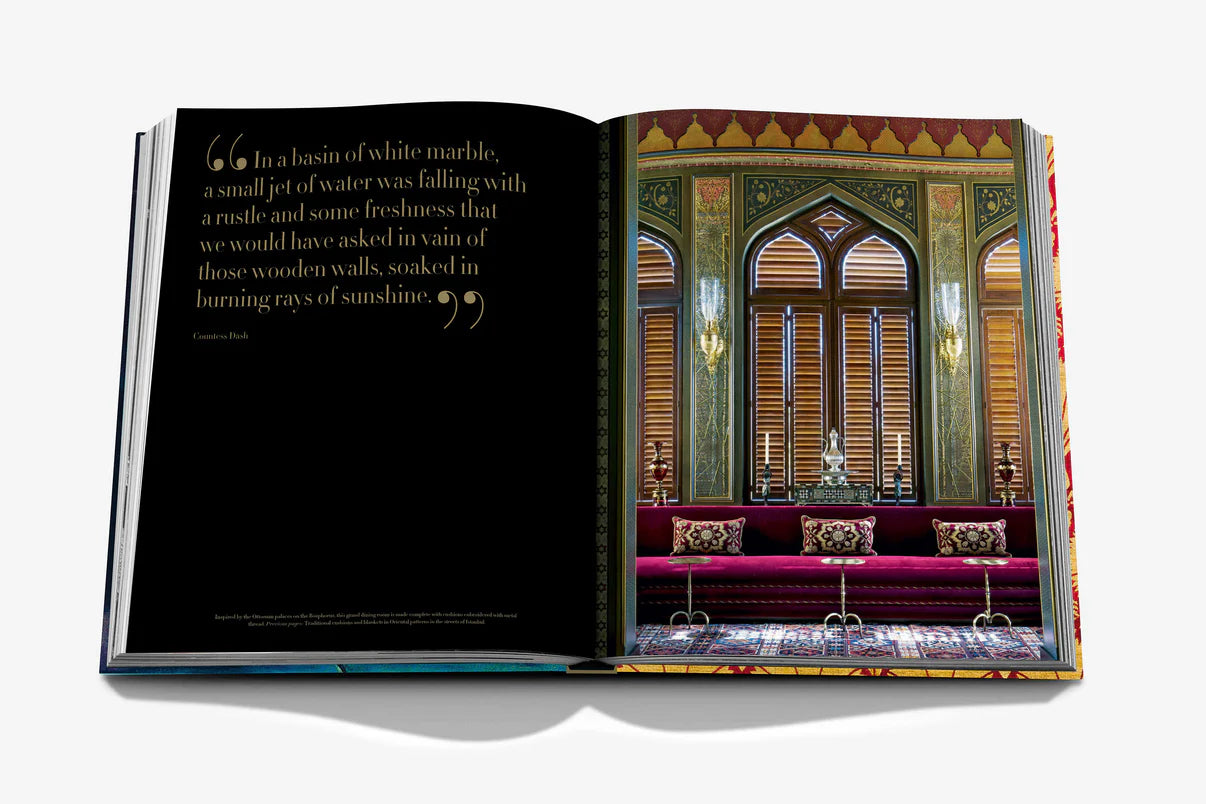 “ In a basin of white marble,
a small jet of water was falling with
a rustle and some freshness that
we would have asked in vain of
those wooden walls, soaked in
burning rays of sunshine. ”
Countess Dash
Inspired by the Ottoman palaces on the Bosphorus, this grand dining room is made complete with cushions embroidered with metal
thread. Previous pages: Traditional cushions and blankets in Oriental patterns in the streets of Istanbul.